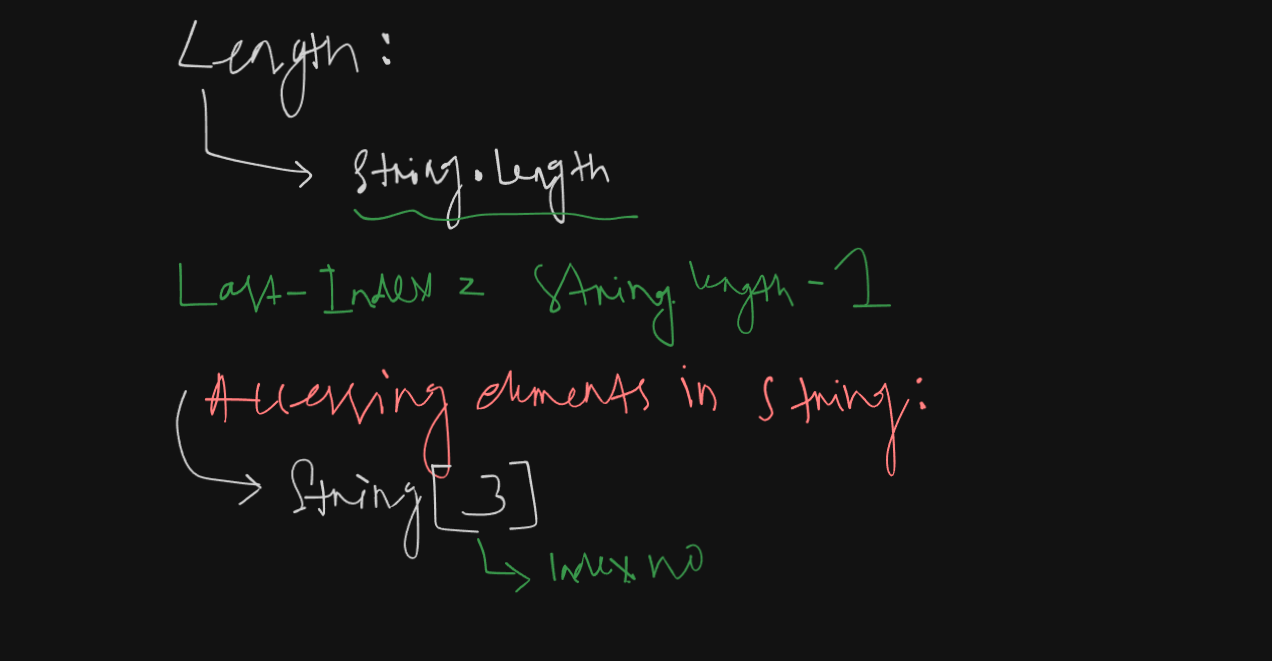 Length:
String.Length
Last-Index = String.length-1
Accessing elements in String:
String[3]
Index no